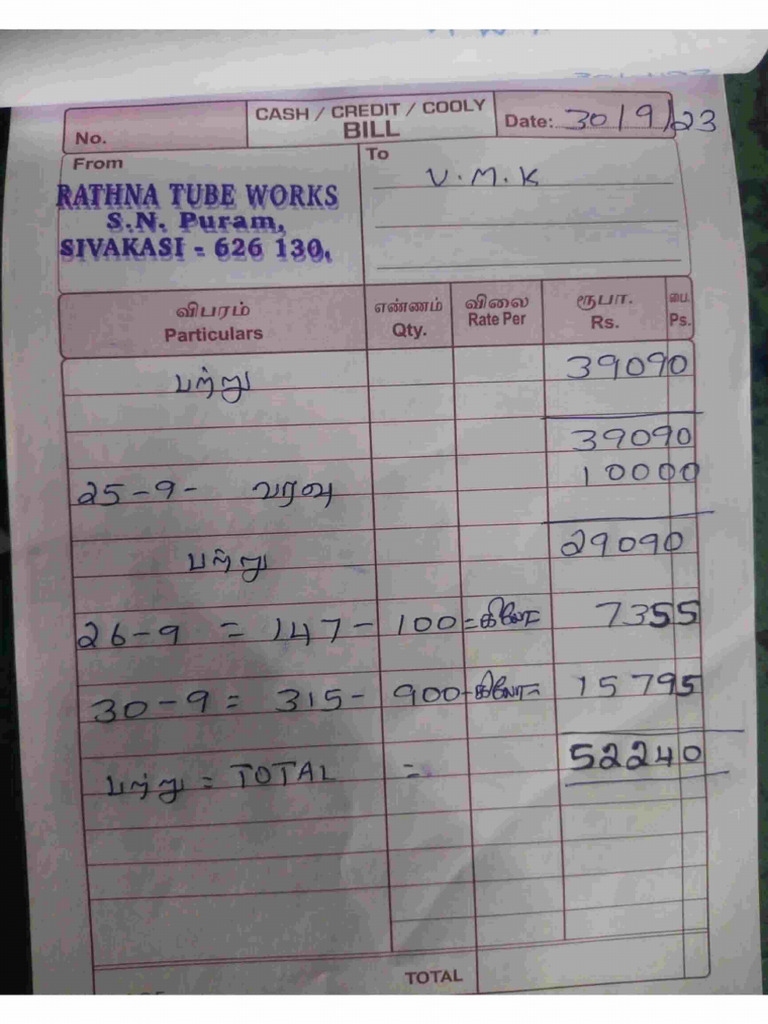 CASH / CREDIT / COOLY
No. BILL Date: 30/9/23
From To
RATHNA TUBE WORKS V.M.K
S.N. Puram,
SIVAKASI - 626 130.
விபரம் எண்ணம் விலை ரூபா. பை.
Particulars Qty. Rate Per Rs. Ps.
பற்று 39090
39090
25-9- வரவு 10000
பற்று 29090
26-9 = 147- 100=கிலோ 7355
30-9= 315- 900-கிலோ= 15795
பற்று = TOTAL = 52240
TOTAL